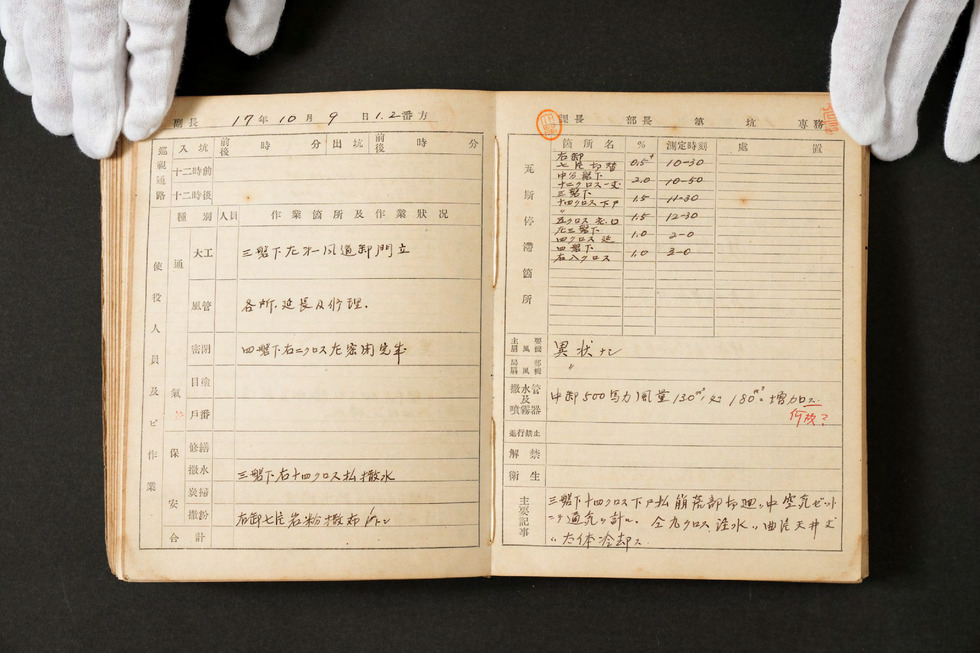 副長 17年10月9日1.2番方
巡視通路 入坑 前後 時 分 出坑 前後 時 分
十二時前
十二時後
使役人員及ビ作業
種別 人員 作業箇所及作業状況
通氣
大工 三盤下左オ一風道卸門立
風管 各所、延長及修理.
密閉 四盤下右二クロス左密閉完成
目檢
戶番
保安
修繕
撒水 三盤下右十四クロス払撒水
炭掃
撒粉 右卸七片岩粉撒布
合計
課長 部長 第 坑 専務
瓦斯停滯箇所
箇所名 % 測定時刻 處置
右卸
七片切替 0.5 10-30
中分盤下
十二クロス 2.0 10-50
三盤下
十四クロス下 1.5 11-30
〃
五クロス 1.5 12-30
左三盤下
四クロス延 1.0 2-0
四盤下
右八クロス 1.0 3-0
主要扇風機 異状ナシ
局部扇風機 〃
撒水管及噴霧器 中卸500馬力風量130m³ 180m³ 増加ロス
何故?
進行禁止
解禁
衛生
主要記事
三盤下十四クロス下 払崩落部
通気 計 仝九クロス 注水 曲片天井
冷却ス